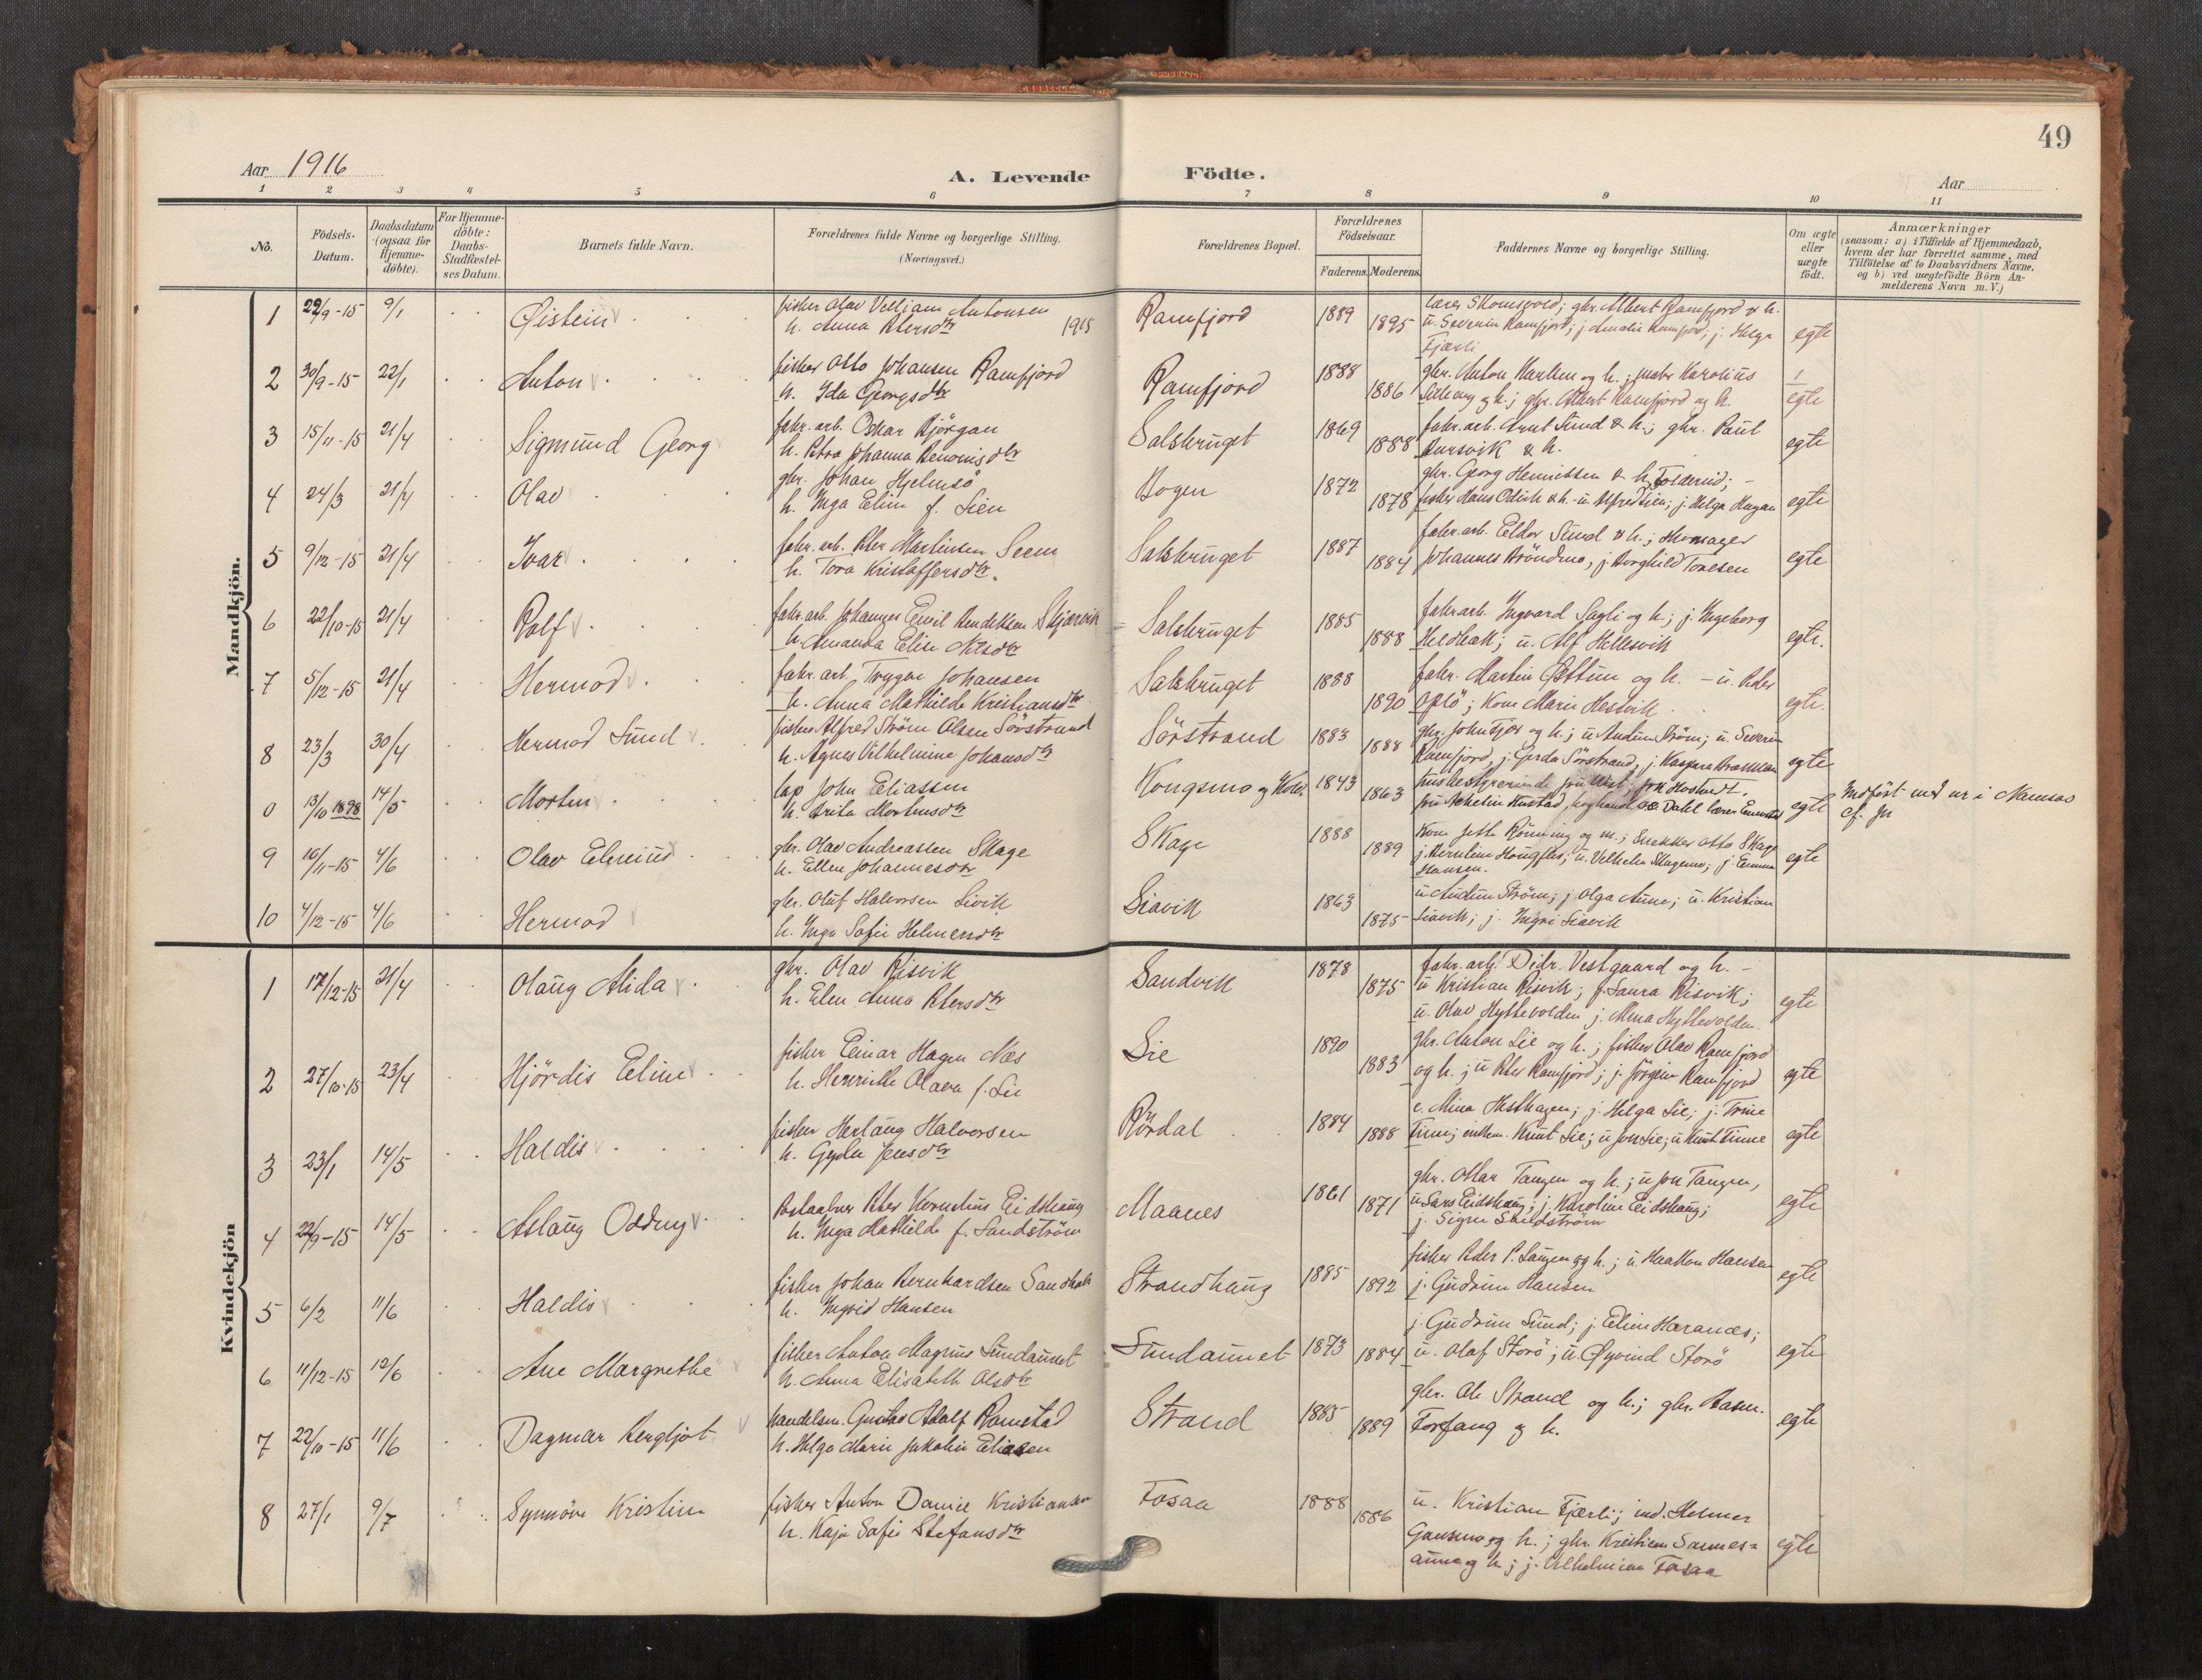 49
Aar 1916
A. Levende
Födte.
Aar
1 2 3 4 5 6 7 8 9 10 11
No.
Födsels-
Datum.
Daabsdatum
(ogsaa for
Hjemme-
döbte).
For Hjemme-
döbte:
Daabs-
Stadfæstel-
ses Datum.
Barnets fulde Navn.
Forældrenes fulde Navne og borgerlige Stilling.
(Næringsvei.)
Forældrenes Bopæl.
Forældrenes
Födselsaar.
Faderens. Moderens.
Faddernes Navne og borgerlige Stilling.
Om ægte
eller
uægte
födt.
Anmærkninger
(saasom: a) i Tilfælde af Hjemmedaab,
hvem der har forrettet samme, med
Tilföielse af to Daabsvidners Navne,
og b) ved uægtefödte Börn An-
melderens Navn m. V.)
Mandkjön.
1 29/9-15 9/1 Øistein
fisher Olav Villiam Antonsen
h. Anna Petersdtr 1915
Ramfjord 1889 1895
lærer Skomsvold; gbr. Albert Ramfjord & h.
u. Severin Ramfjord; j. Amalie Ramfjord; j. Helga
Fjærli
egte
2 30/9-15 22/1 Anton
fisher Otto Johansen Ramfjord
h. Ida Georgsdtr
Ramfjord 1888 1886
gbr. Anton og h.; Karolius
og h.; gbr. Albert Ramfjord og h.
1
egte
3 15/11-15 21/4 Sigmund Georg
fabr. arb. Oskar Bjørgan
h. Petra Johanna
Salsbruget 1869 1888
fabr. arb. Arnt Sund & h.; gbr. Paul
& h.
egte
4 24/3 21/4 Olav
gbr. Johan Hjelmsö
h. Inga Eline f. Lien
Bogen 1872 1878
gbr. Georg Henriksen & h. Foldereid; -
fisker Hans & h. - u. Alfred Lien; j. Helga Hagan
egte
5 9/12-15 21/4 Ivar
fabr. arb. Peter Martinsen Seem
h. Tora Kristoffersdtr.
Salsbruget 1887 1884
fabr. arb. Eldor Sund & h.;
Johannes Brøndmo, j. Borghild Tonesen
egte
6 22/10-15 21/4 Rolf
fabr. arb. Johannes Emil Bendiksen Skjærvik
h. Amanda Elise Nilsdtr
Salsbruget 1885 1888
fabr. arb. Ingvard Sagli og h.; j. Ingeborg
Heldbak; u. Alf Hellesvik
egte.
7 5/12-15 21/4 Hermod
fabr. arb. Trygve Johansen
h. Anna Mathilde Kristiansdtr
Salsbruget 1888 1890
fabr. Martin og h. - u. Peder
Oplö; Kone Marie Hestvik
egte.
8 23/3 30/4 Hermod Sund
fisker Alfred Strøm Olsen Sörstrand
h. Agnes Vilhelmine Johansdtr
Sörstrand 1883 1888
gbr. John Fjær og h.; u. Audun Strøm; u. Severin
Ramfjord, j. Gerda Sörstrand, j. Kaspara
egte
0 13/10 1898 14/5 Morten
lap John Eliassen
h. Arita Mortensdtr
Kongsmo og 1843 1863
Dahl lærer
egte
Indført med nr i Namsos
cf. Jn
9 10/11-15 4/6 Olav Elenius
gbr. Olav Andreassen Skage
h. Ellen Johannesdtr
Skage 1888 1889
Kone Rönning og m.; Snekker Otto Skage
j. ; u. Vilhelm Skagemo, j. Emma
Hansen.
egte
10 4/12-15 4/6 Hermod
gbr. Oluf Halvorsen Sivik
h. Inga Sofie Helmersdtr
Siavik 1863 1875
u. Audun Strøm; j. Olga Aune; u. Kristian
Siavik; j. Ingri Siavik
Kvindekjön
1 17/12-15 21/4 Olaug Alida
gbr. Olav Risvik
h. Elen Anna Petersdtr
Sandvik 1878 1875
fabr. arb. Didr. Vestgaard og h. -
u. Kristian Risvik; j. Laura Risvik;
u. Olav Hyttevolden j. Mina Hyttevolden.
egte
2 27/10-15 23/4 Hjördis Eline
fisker Einar Hagen Næs
h. Henrikke Olava f. Lie
Lie 1890 1883
gbr. Anton Lie og h.; fisker Olav Ramfjord
og h.; u. Peter Ramfjord; j. Jörgine Ramfjord
egte
3 23/1 14/5 Haldis
fisker Herlaug Halvorsen
h. Gyda Jensdtr
Rørdal 1884 1888
e. Mina Hesthagen; j. Helga Lie; j. Trine
Finne; Knut Lie; u. Jon Lie; u. Knut Finne
egte
4 22/9-15 14/5 Aslaug Oddny
Postaabner Peter Kornelius Eidshaug
h. Inga Mathilde f. Sandström
Maanes 1861 1871
gbr. Otlar Tangen og h.; u. Jon Tangen,
u. Lars Eidshaug; j. Karoline Eidshaug;
j. Signe Sandström
egte
5 6/2 11/6 Haldis
fisker Johan Bernhardsen Sandbak
h. Ingrid Hansen
Strandhaug 1885 1892
fisker Peder P. Laugen og h.; u. Haakon Hansen
j. Gudrun Hansen
egte
6 11/12-15 12/6 Ane Margrethe
fisker Anton Magnus Sundaunet
h. Anna Elisabeth Olsdtr
Sundaunet 1873 1884
j. Gudrun Sund; j. Eline Haranes;
u. Olaf Storö; u. Øyvind Storö
egte
7 22/10-15 11/6 Dagmar Bergljot
handelsm. Gustav Adolf Ramstad
h. Helga Marie Jakobine Eliasen
Strand 1885 1889
gbr. Ole Strand og h.; gbr. Rasm.
Forfang og h.
egte
8 27/1 9/7 Synnöve Kristine
fisker Anton Daniel Kristiansen
h. Kaja Sofie Stefansdtr
Fosaa 1888 1886
u. Kristian Fjærli; ind. Helmer
Gansmo og h.; gbr. Kristian Sannes=
aune og h; j. Vilhelmine Fosaa
egte